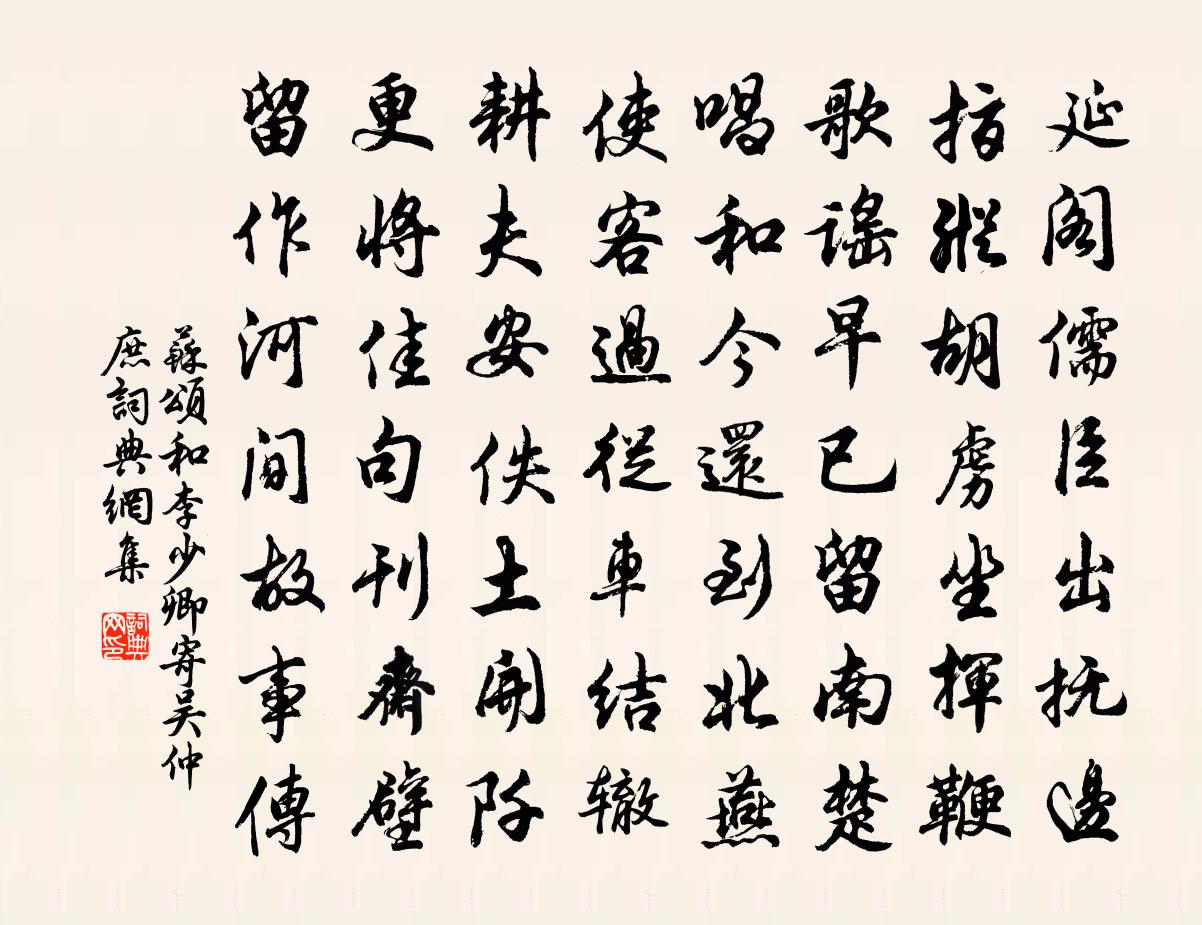 延阁儒臣出抚邊
指縱胡虜坐揮鞭
歌謠早已留南楚
唱和今還到北燕
使客過從車结辙
耕夫安佚土開阡
更將佳句刊齋壁
留作河間故事傳
蘇頌和李少卿寄吴仲
庶詞典網集
詞典
网印